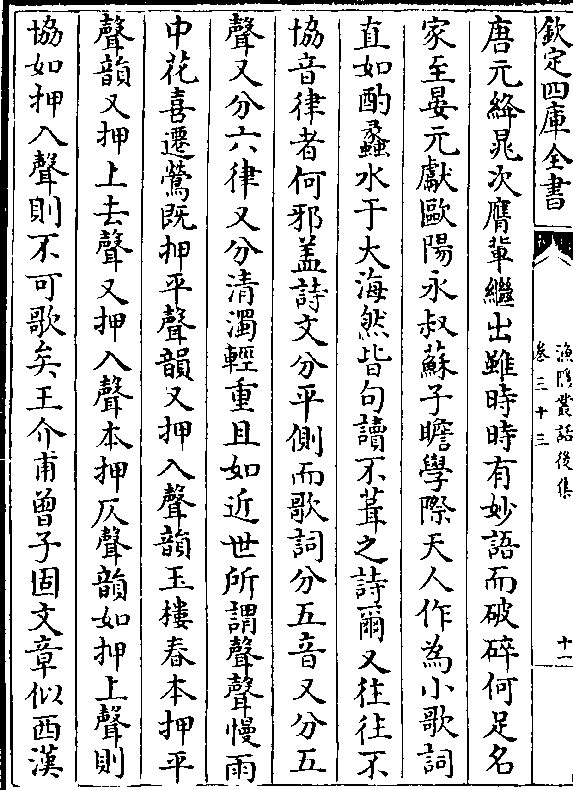 欽定四庫全書
漁隱叢話後集
卷三十三
十一
唐元絳晁次膺軰繼出雖時時有妙語而破碎何足名
家至晏元獻歐陽永叔蘇子瞻學際天人作為小歌詞
直如酌蠡水于大海然皆句讀不葺之詩爾又往往不
協音律者何邪盖詩文分平側而歌詞分五音又分五
聲又分六律又分清濁輕重且如近世所謂聲聲慢雨
中花喜遷鶯既押平聲韻又押入聲韻玉樓春本押平
聲韻又押上去聲又押入聲本押仄聲韻如押上聲則
協如押入聲則不可歌矣王介甫曾子固文章似西漢